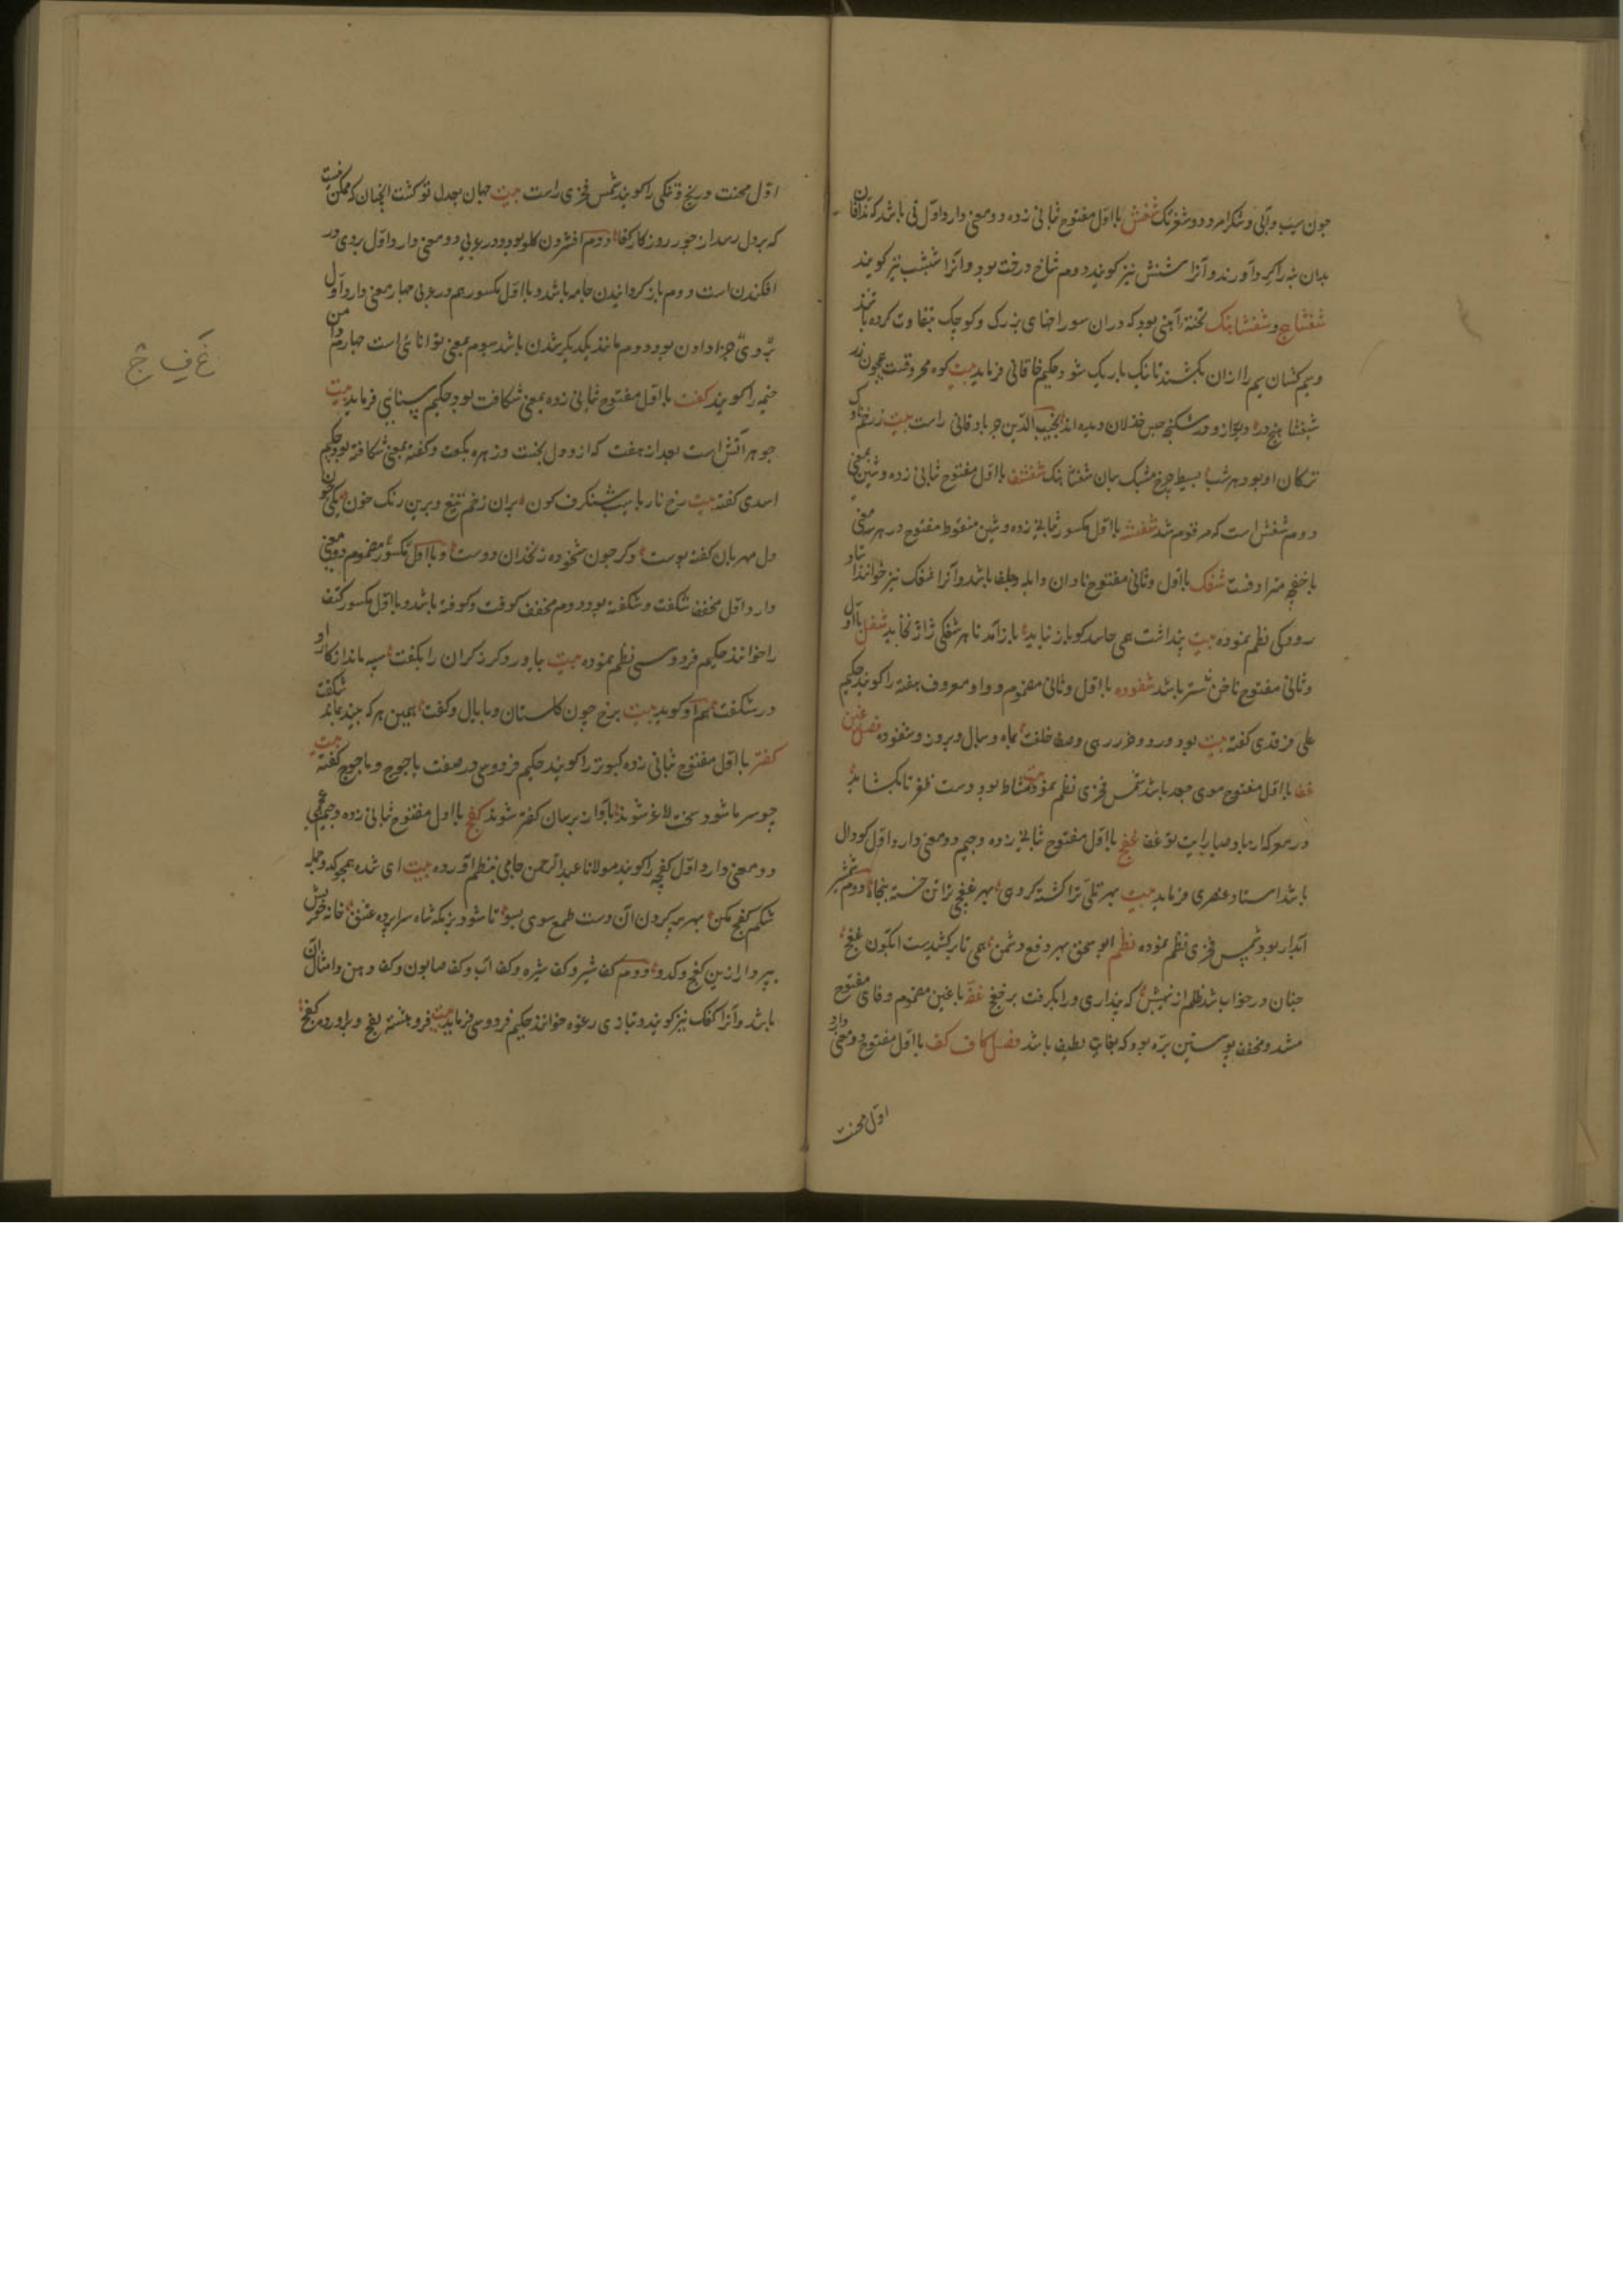 چون سیب و آبی و شکر امرود و شفرنک شفش با اول مفتوح ثبانی زده دو معنی دارد اول نی باشد که ندافان
بدان پنبه را کرد آورند و آنرا شنش نیز کویند دوم شاخ درخت بود و آنرا شبشب نیز کویند
شفشاهج و شفشاهنک تخته آهنی بود که دران سوراخهای بزرک و کوچک متفاوت کرده باشند
و سیم کشان سیم را ازان بکشند تا نک باریک شود حکیم خاقانی فرماید بیت کوه محروقست همچون زر
شفشاهنج در دیو را زو در شکنجه حبس خذلان دیده اند نجیب الدین جربادقانی راست بیت ز زخم ناوک
ترکان او بود هر شب بسیط چرخ مشبک بسان شفشاهنک شفشف با اول مفتوح ثبانی زده و شین
دوم شفش است که مرقوم شد شفشه با اول مکسور ثبانی زده و شین منقوط مفتوح در هر سه معنی
با خفچه مترادفست شفک با اول و ثانی مفتوح نادان و ابله و جلف باشد و آنرا غفک نیز خوانند استاد
رودکی نظم نموده بیت پنداشت همی حاسد کو باز نیاید باز آمد تا هر شفکی ژاژ نخاید شفل با اول
و ثانی مفتوح ناخن شتر باشد شفوده با اول و ثانی مضموم و واو معروف هفته را کویند حکیم
علی فرقدی کفته بیت بود ورد و وصف خلقت ماه و سال و روز و شفوده فصل غین
غف با اول مفتوح موی جعد باشد شمس فخری نظم نموده بیت مشاط بود دست ظفر تا بکشاید
در معرکه از باد صبا رایت تو غف غفج با اول مفتوح ثبانی زده و جیم دو معنی دارد اول کودال
باشد استاد عنصری فرماید بیت بهر تلی ترا کشته کروهی بهر غفجی ترا تن خسته پنجاه دوم شمشیر
آبدار بود شمس فخری نظم نموده نظم ابو سحق بهر دفع دشمن همی تا بر کشیدست ابکون غفج
چنان در خواب شد ظلم از نهیبش که پنداری ورا بکرفت برخفج غفه با غین مضموم و فای مفتوح
مشدد و مخفف پوستین بره بود که بغایت لطیف باشد فصل کاف کف با اول مفتوح دو معنی دارد
اول محنت
اول محنت و رنج و تنکی را کویند شمس فخری راست بیت جهان بعدل تو کشت انچنان که ممکن نیست
که بر دل رسد از جور روزکار کفا دوم افشردن کلو بود و در عربی دو معنی دارد اول بروی در
افکندن است دوم باز کردانیدن جامه باشد و با اول مکسور هم در عربی چهار معنی دارد اول
جزا دادن بود دوم مانند یکدیکر شدن باشد سوم بمعنی توانائی است چهارم دامن
خیمه را کویند کفت با اول مفتوح ثبانی زده بمعنی شکافت بود حکیم سنائی فرماید بیت
جوهر آتش است بعد از هفت که ازو دل بخست و زهره بکفت و کفته بمعنی شکافته بود حکیم
اسدی کفته بیت رخ نار با سیب شنکرف کون بران زخم تیغ و برین رنک خون یکی چون
دل مهربان کفته پوست دکر چون شخوده زنخدان دوست و با اول مکسور مضموم دو معنی
دارد اول مخفف شکفت و شکفته بود دوم مخفف کوفت و کوفته باشد و با اول مکسور کتف
را خوانند حکیم فردوسی نظم نموده بیت بیاورد کرز کران را بکفت سپه ماند از کار او
در شکفت هم او کوید بیت برخ چون کلستان و با یال و کفت همین هرکه بیند بماند شکفت
کفتر با اول مفتوح ثبانی زده کبوتر را کویند حکیم فردوسی در صفت یاجوج و ماجوج کفته بیت
چو سرما شود سخت لاغر شوند بآواز برسان کفتر شوند کفج با اول مفتوح ثبانی زده و جیم عجمی
دو معنی دارد اول کفچه را کویند مولانا عبد الرحمن جامی بنظم آورده بیت ای شده همچو که و جله
شکم کفچ مکن بهر پر کردن آن دست طمع سوی بسو تا شود بزمکه شاه سراپرده عشق خانه خویش
بپرداز ازین کفچ و کدو دوم کف شیر و کف شیره و کف آب و کف صابون و کف دهن و امثال آن
باشد و آنرا کفک نیز کویند و بتازی رغوه خوانند حکیم فردوسی فرماید بیت فروهشته لفج و براورده کفج